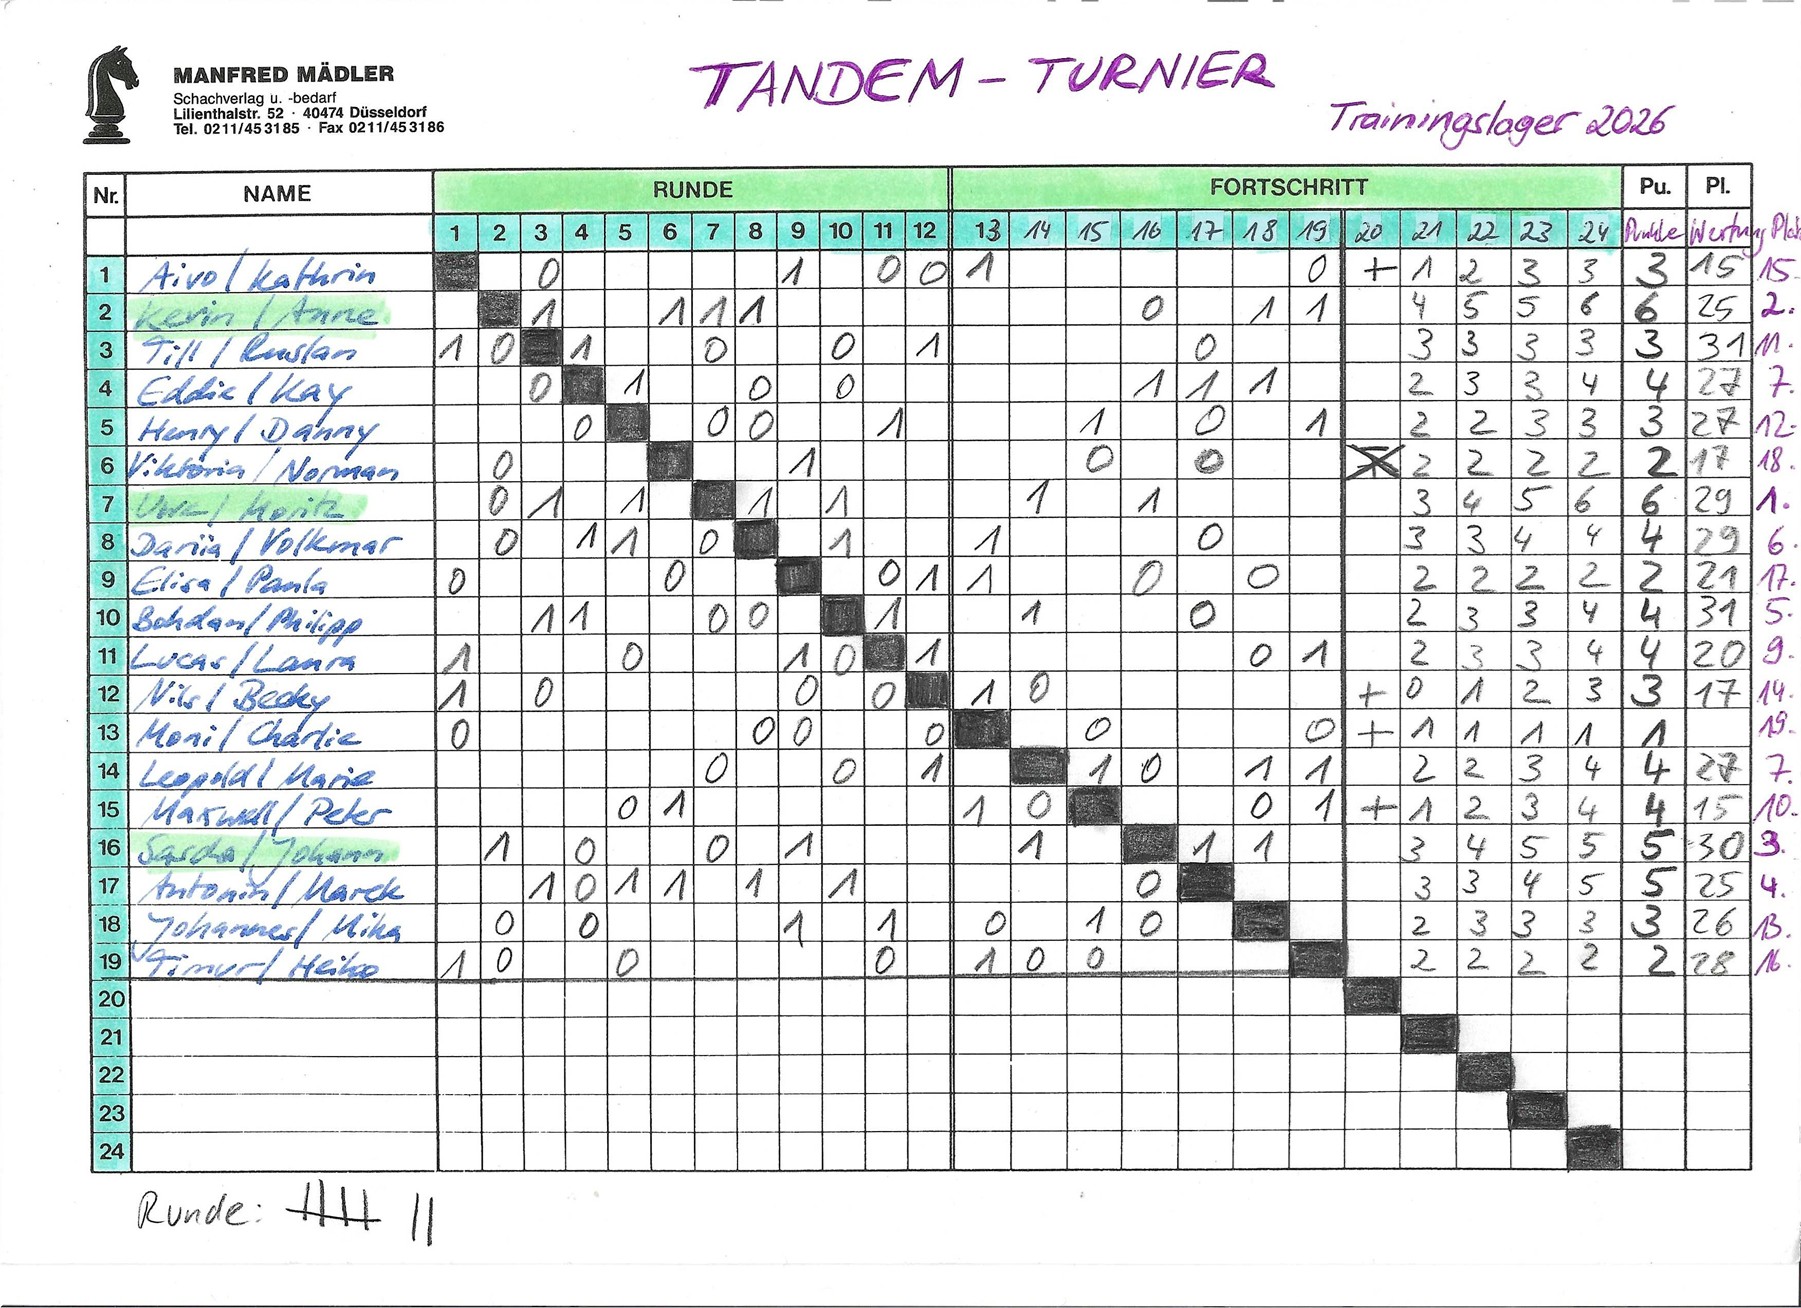 MANFRED MÄDLER
Schachverlag u. -bedarf
Lilienthalstr. 52 · 40474 Düsseldorf
Tel. 0211/453185 · Fax 0211/453186
TANDEM - TURNIER
Trainingslager 2026
Nr. NAME RUNDE FORTSCHRITT Pu. Pl.
1 2 3 4 5 6 7 8 9 10 11 12 13 14 15 16 17 18 19 20 21 22 23 24 Punkte Wertung Platz
1 Aivo / Kathrin 0 1 0 0 1 0 + 1 2 3 3 3 15 15.
2 Kevin / Anne 1 1 1 1 0 1 1 4 5 5 6 6 25 2.
3 Till / Ruslan 1 0 1 0 0 1 0 3 3 3 3 3 31 11.
4 Eddie / Kay 0 1 0 0 1 1 1 2 3 3 4 4 27 7.
5 Henry / Danny 0 0 0 1 1 0 1 2 2 3 3 3 27 12.
6 Viktoria / Norman 0 1 0 0 2 2 2 2 2 17 18.
7 Uwe / Moritz 0 1 1 1 1 1 1 3 4 5 6 6 29 1.
8 Dariia / Volkmar 0 1 1 0 1 1 0 3 3 4 4 4 29 6.
9 Elisa / Paula 0 0 0 1 1 0 0 2 2 2 2 2 21 17.
10 Bohdan / Philipp 1 1 0 0 1 1 0 2 3 3 4 4 31 5.
11 Lucas / Laura 1 0 1 0 1 0 1 2 3 3 4 4 20 9.
12 Nils / Becky 1 0 0 0 1 0 + 0 1 2 3 3 17 14.
13 Moni / Charlie 0 0 0 0 0 0 + 1 1 1 1 1 19.
14 Leopold / Marie 0 0 1 1 0 1 1 2 2 3 4 4 27 7.
15 Maxwell / Peter 0 1 1 0 0 1 + 1 2 3 4 4 15 10.
16 Sascha / Johann 1 0 0 1 1 1 1 3 4 5 5 5 30 3.
17 Antonin / Marek 1 0 1 1 1 1 0 3 3 4 5 5 25 4.
18 Johannes / Mika 0 0 1 1 0 1 0 2 3 3 3 3 26 13.
19 Timur / Heiko 1 0 0 0 1 0 0 2 2 2 2 2 28 16.
20
21
22
23
24
Runde: |||| ||